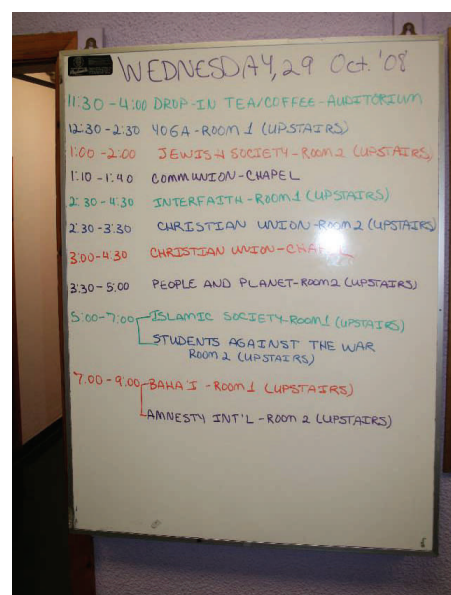 WEDNESDAY, 29 Oct. '08
11:30 - 4:00 DROP-IN TEA/COFFEE - AUDITORIUM
12:30 - 2:30 YOGA - ROOM 1 (UPSTAIRS)
1:00 - 2:00 JEWISH SOCIETY - ROOM 2 (UPSTAIRS)
1:10 - 1:40 COMMUNION - CHAPEL
2:30 - 4:30 INTERFAITH - ROOM 1 (UPSTAIRS)
2:30 - 3:30 CHRISTIAN UNION - ROOM 2 (UPSTAIRS)
3:00 - 4:30 CHRISTIAN UNION - CHAPEL
3:30 - 5:00 PEOPLE AND PLANET - ROOM 2 (UPSTAIRS)
5:00 - 7:00 ISLAMIC SOCIETY - ROOM 1 (UPSTAIRS)
STUDENTS AGAINST THE WAR
ROOM 2 (UPSTAIRS)
7:00 - 9:00 BAHA'I - ROOM 1 (UPSTAIRS)
AMNESTY INT'L - ROOM 2 (UPSTAIRS)